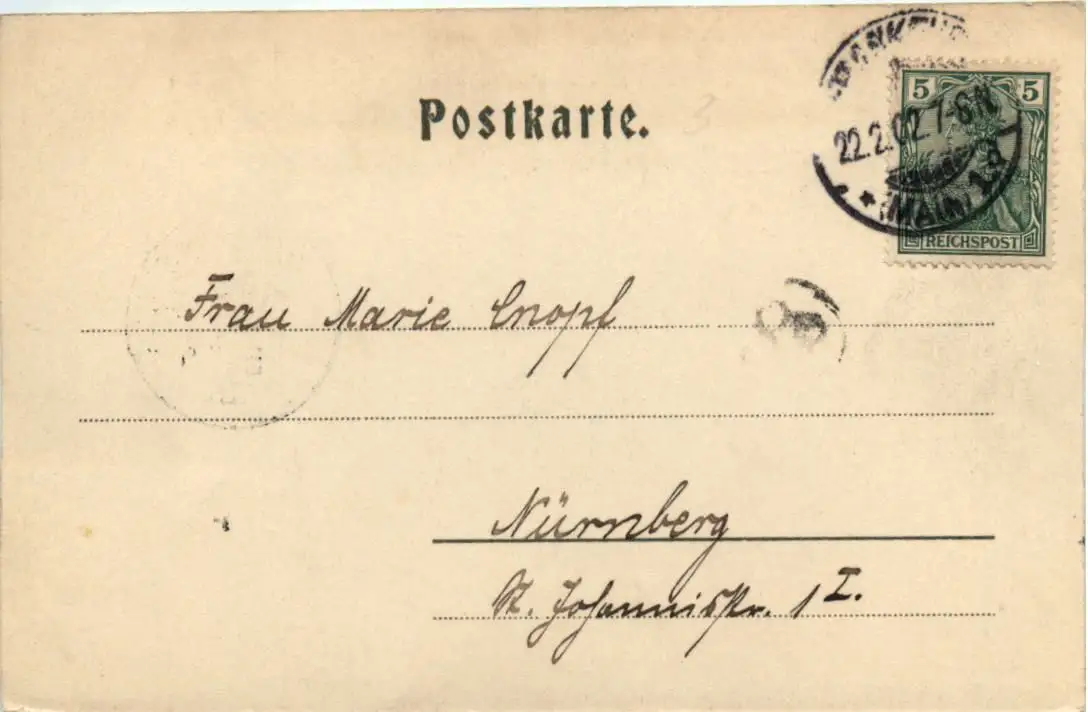 Postkarte.
FRANKFUR
22.2.02. 7-8N.
* (MAIN) 1.
5 5
REICHSPOST
Frau Marie Cnopf
Nürnberg
St. Johannisstr. 1 I.